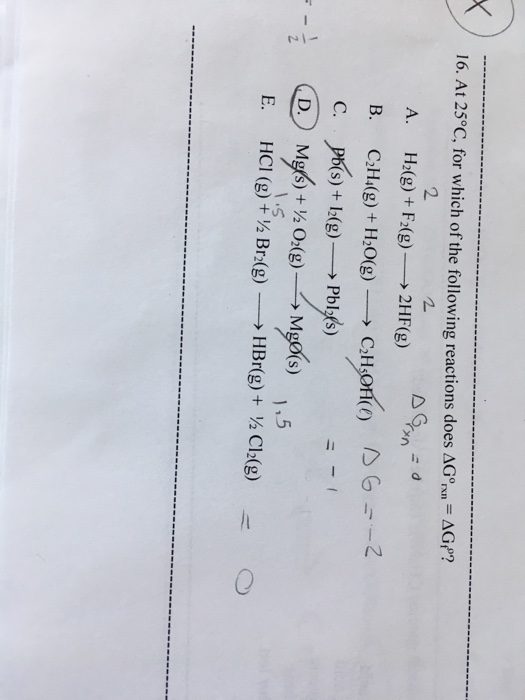 X
16. At 25°C, for which of the following reactions does ΔG°rxn = ΔGf°?
A. H₂(g) + F₂(g) ⟶ 2HF(g)
2 2 ΔGrxn = 0
B. C₂H₄(g) + H₂O(g) ⟶ C₂H₅OH(ℓ) ΔG = -2
C. Pb(s) + I₂(g) ⟶ PbI₂(s) = -1
D. Mg(s) + ½ O₂(g) ⟶ MgO(s)
= - 1/2
1.5 1.5
E. HCl (g) + ½ Br₂(g) ⟶ HBr(g) + ½ Cl₂(g) = 0